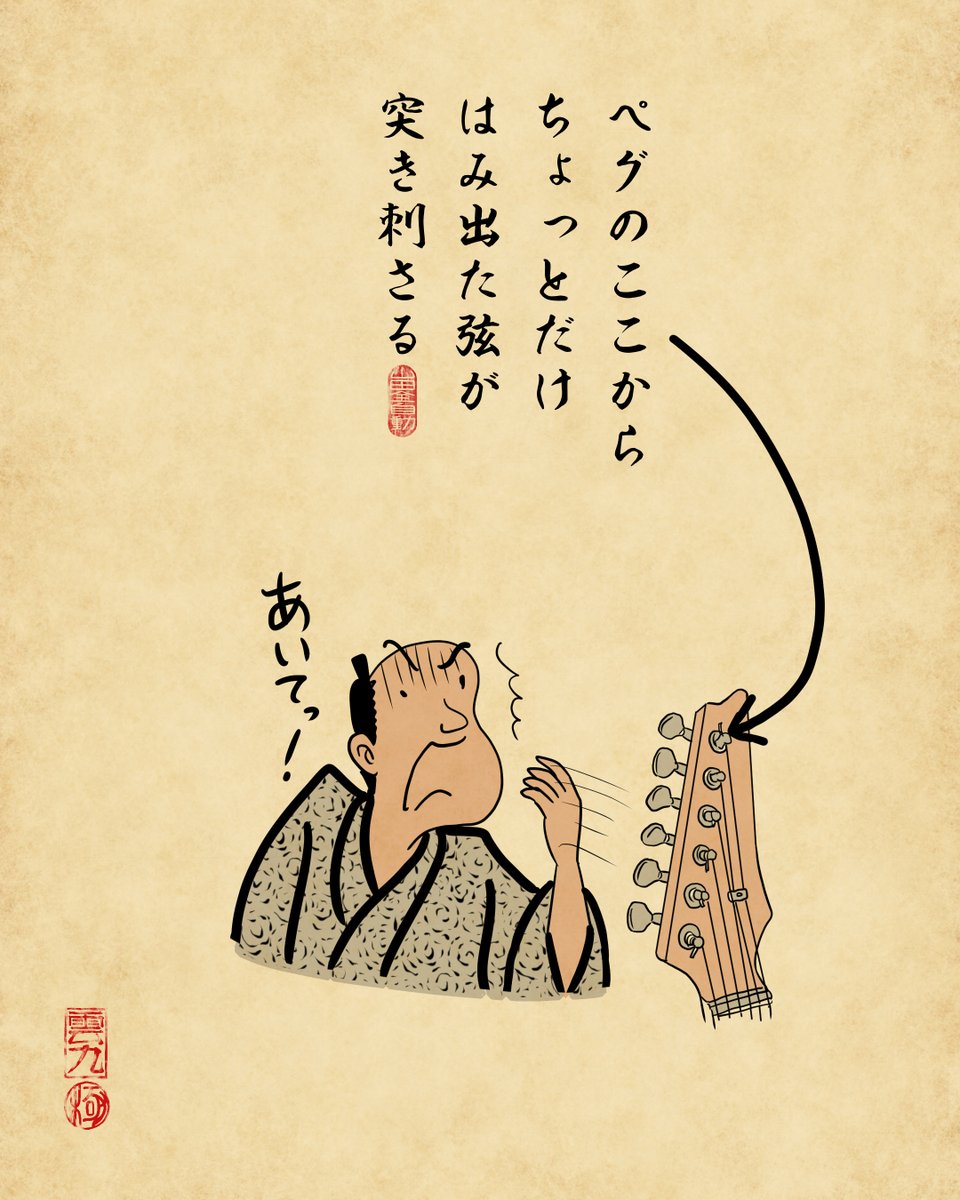 ペグのここから
ちょっとだけ
はみ出た弦が
突き刺さる
あいてっ！